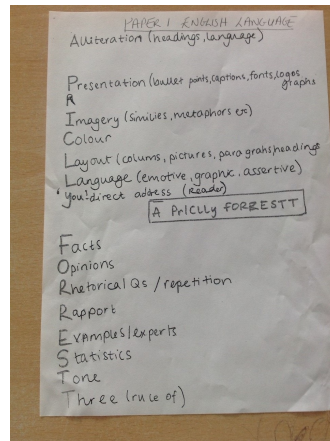 PAPER 1 ENGLISH LANGUAGE
Alliteration (headings, language)
Presentation (bullet points, captions, fonts, logos
graphs
R
Imagery (similies, metaphors etc)
Colour
Layout (colums, pictures, paragrahs, headings
Language (emotive, graphic, assertive)
'You' direct address (reader)
A PrICLLy FORRESTT
Facts
Opinions
Rhetorical Qs / repetition
Rapport
Examples/experts
Statistics
Tone
Three (rule of)